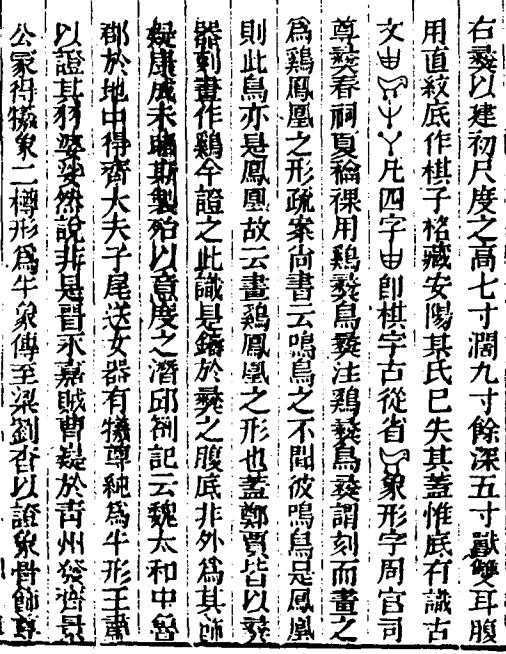 右彞以建初尺度之高七寸濶九寸餘深五寸獸雙耳腹
用直紋底作棋子格藏安陽某氏已失其蓋惟底有識古
文凡四字卽棋字古從省象形字周官司
尊彞春祠夏禴祼用鷄彞鳥彞注鷄彞鳥彞謂刻而畫之
爲鷄鳳凰之形疏案尚書云鳴鳥之不聞彼鳴鳥是鳳凰
則此鳥亦是鳳凰故云畫鷄鳳凰之形也蓋鄭賈皆以彞
器刻畫作鷄今證之此識是鑄於彞之腹底非外爲其飾
疑康成未睹斯製殆以意度之潛邱劄記云魏太和中魯
郡於地中得齊大夫子尾送女器有犧尊純爲牛形王肅
以證其羽婆娑然說非是晉永嘉賊曹嶷於青州發齊景
公冢得犧象二樽形爲牛象傳至梁劉杳以證象骨飾尊